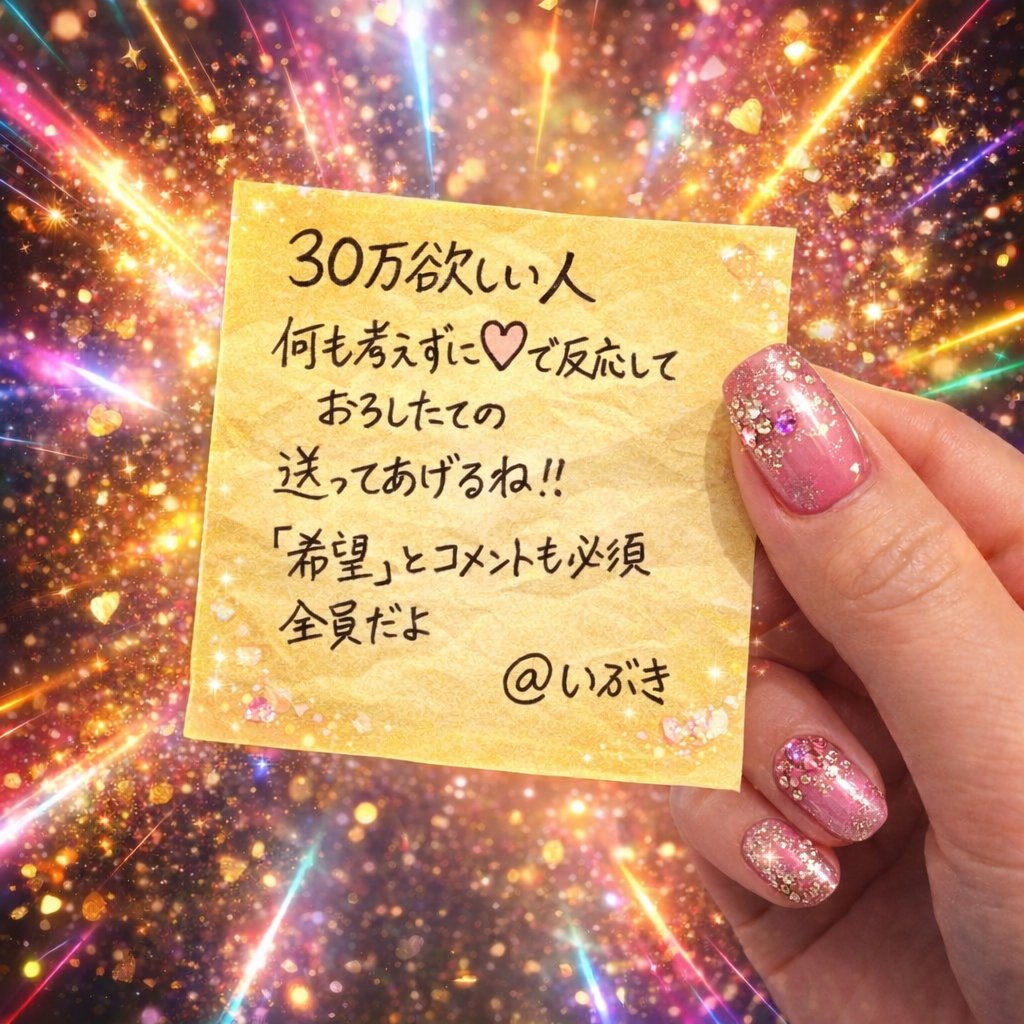 30万欲しい人
何も考えずに♡で反応して
おろしたての
送ってあげるね!!
「希望」とコメントも必須
全員だよ
@いぶき